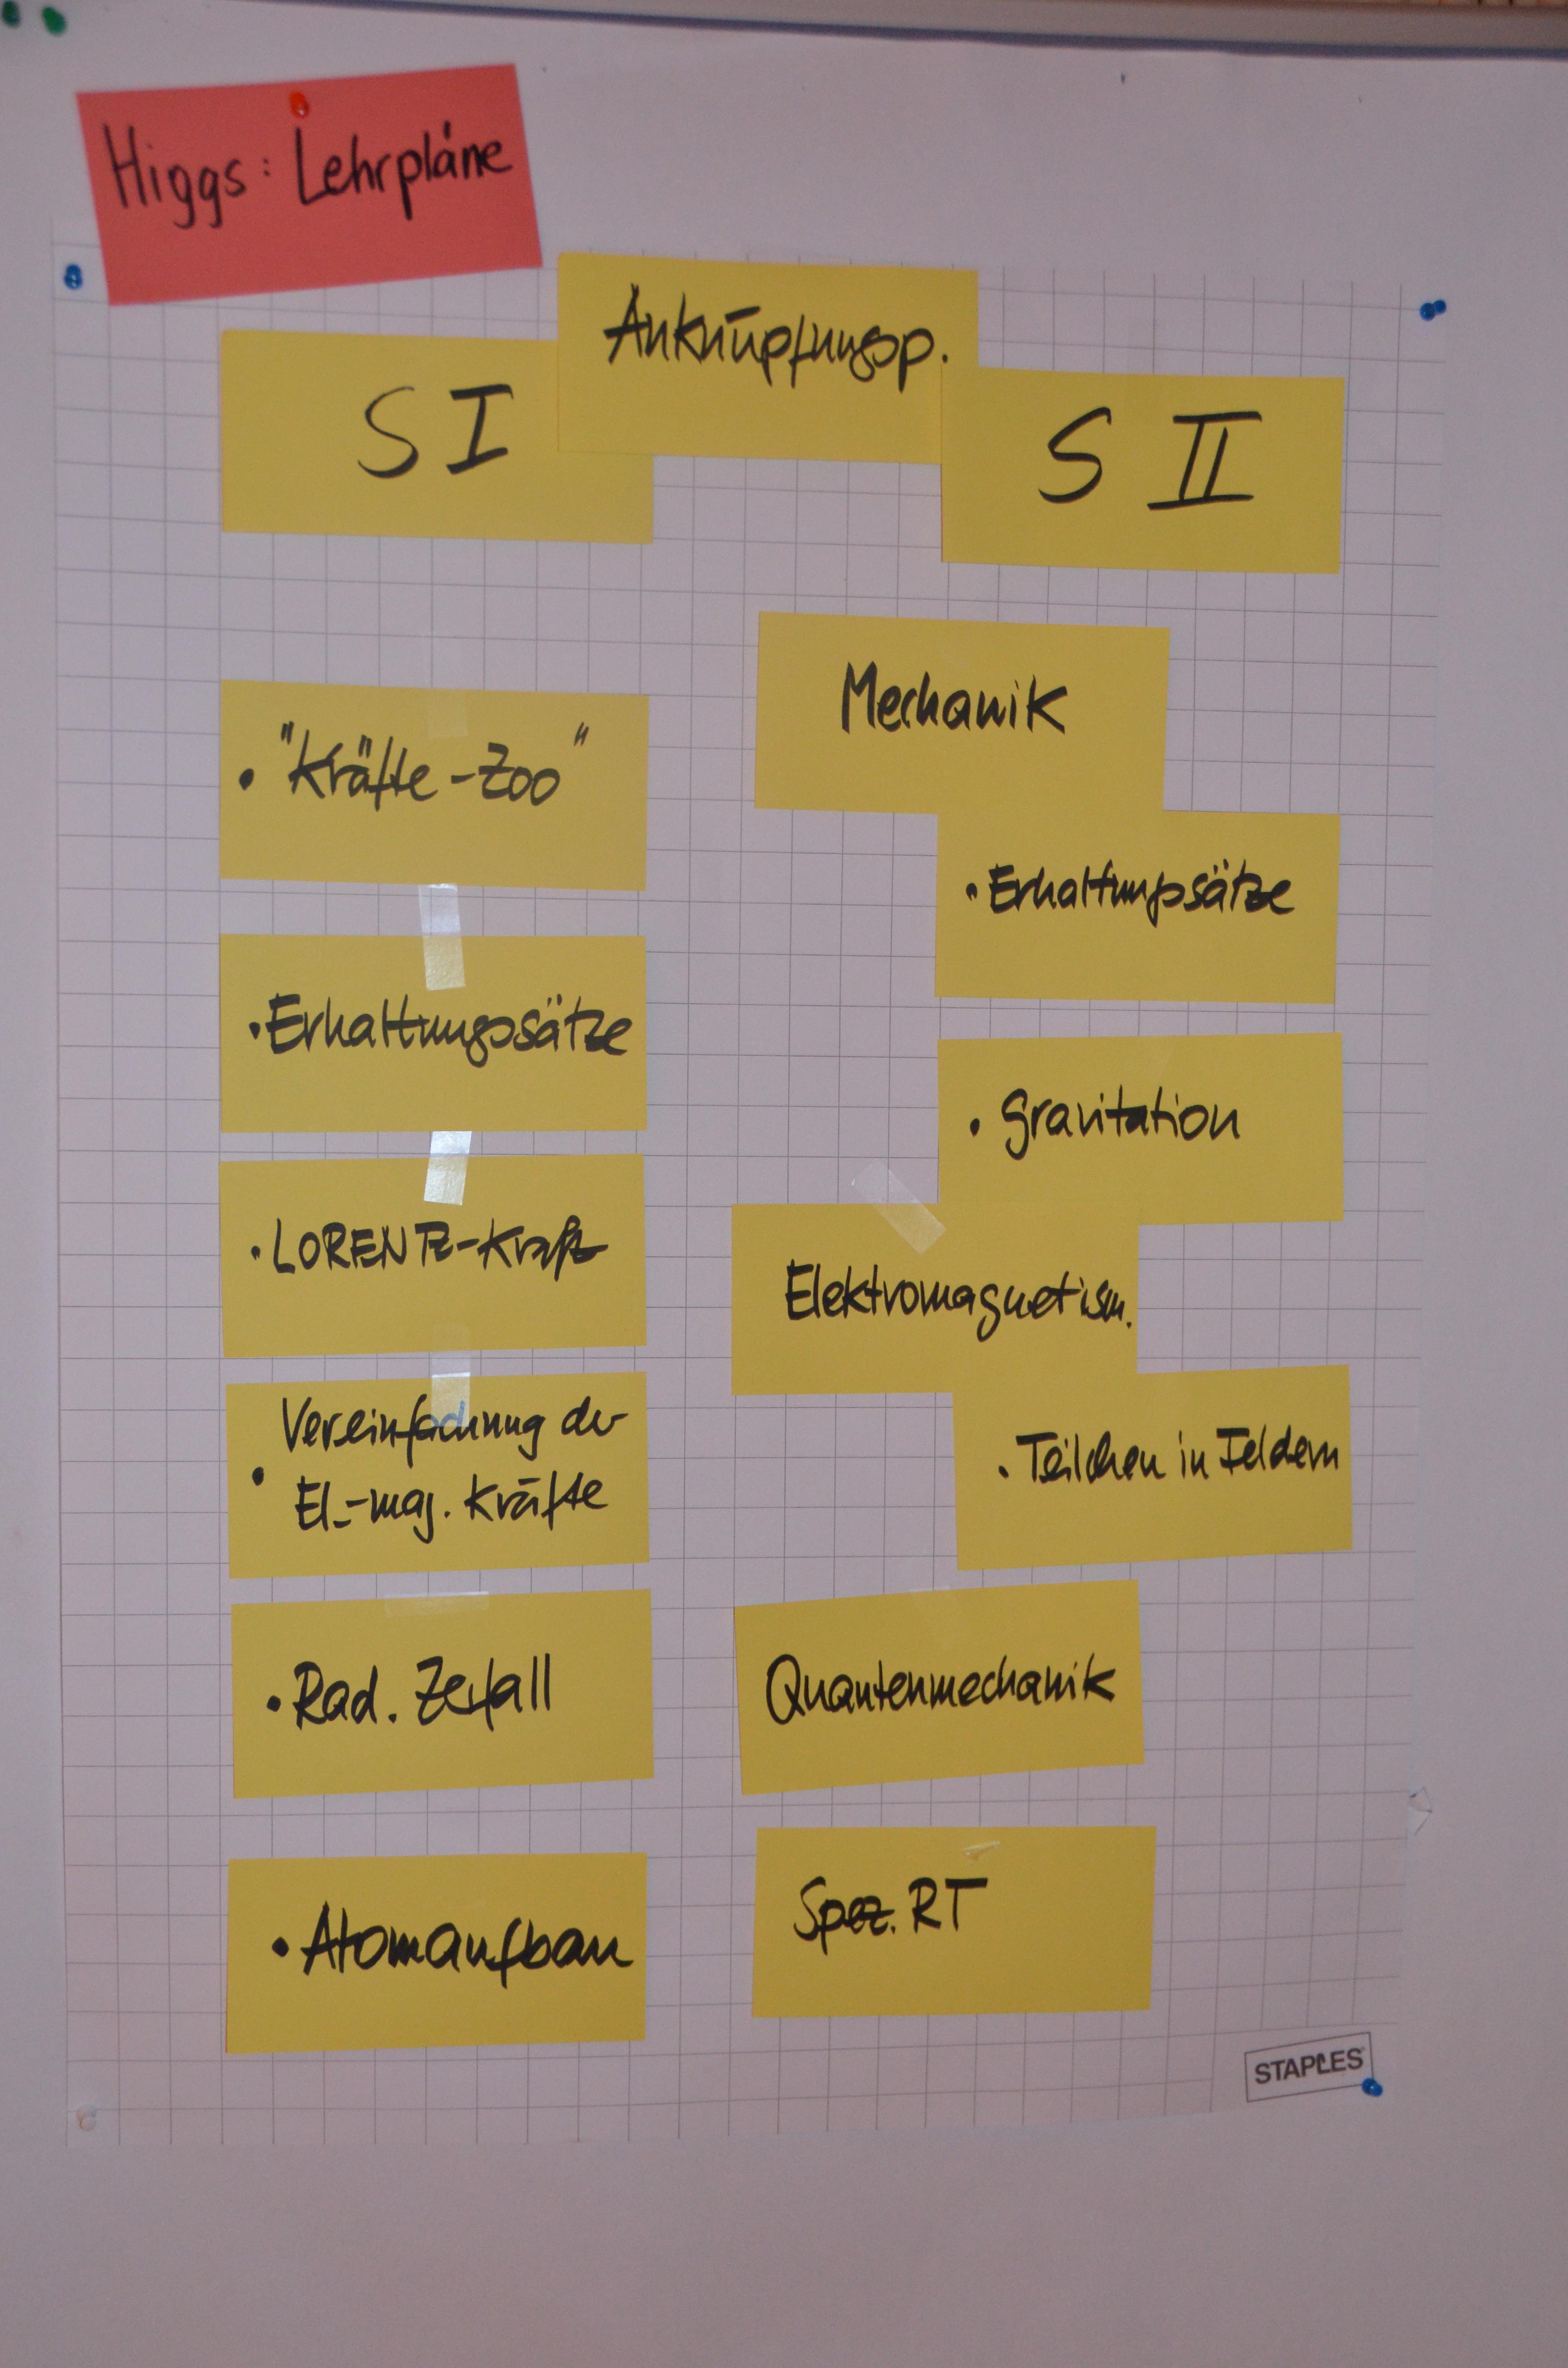 Higgs: Lehrpläne
Anknüpfungsp.
S I
• "Kräfte-Zoo"
• Erhaltungssätze
• LORENTZ-Kraft
• Vereinfachung der
El.-mag. Kräfte
• Rad. Zerfall
• Atomaufbau
S II
Mechanik
• Erhaltungssätze
• Gravitation
Elektromagnetism.
• Teilchen in Feldern
Quantenmechanik
Spez. RT
STAPLES